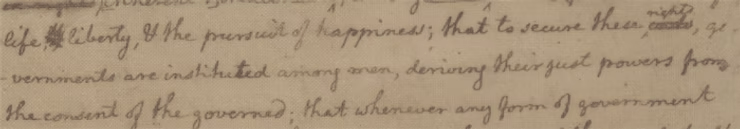 life, liberty, & the pursuit of happiness; that to secure these rights, go-
-vernments are instituted among men, deriving their just powers from
the consent of the governed; that whenever any form of government